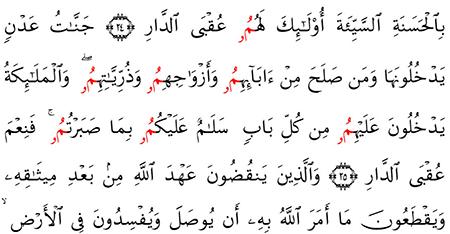 بِالْحَسَنَةِ السَّيِّئَةَ أُوْلَٰٓئِكَ لَهُمُۥ عُقْبَى ٱلدَّارِ ۝٢٤ جَنَّٰتُ عَدْنٖ
يَدْخُلُونَهَا وَمَن صَلَحَ مِنْ ءَابَآئِهِمُۥ وَأَزْوَٰجِهِمُۥ وَذُرِّيَّٰتِهِمُۥۖ وَٱلْمَلَٰٓئِكَةُ
يَدْخُلُونَ عَلَيْهِمُۥ مِن كُلِّ بَابٖ سَلَٰمٌ عَلَيْكُمُۥ بِمَا صَبَرْتُمُۥۚ فَنِعْمَ
عُقْبَى ٱلدَّارِ ۝٢٥ وَٱلَّذِينَ يَنقُضُونَ عَهْدَ ٱللَّهِ مِنۢ بَعْدِ مِيثَٰقِهِۦ
وَيَقْطَعُونَ مَآ أَمَرَ ٱللَّهُ بِهِۦٓ أَن يُوصَلَ وَيُفْسِدُونَ فِى ٱلْأَرْضِۙ